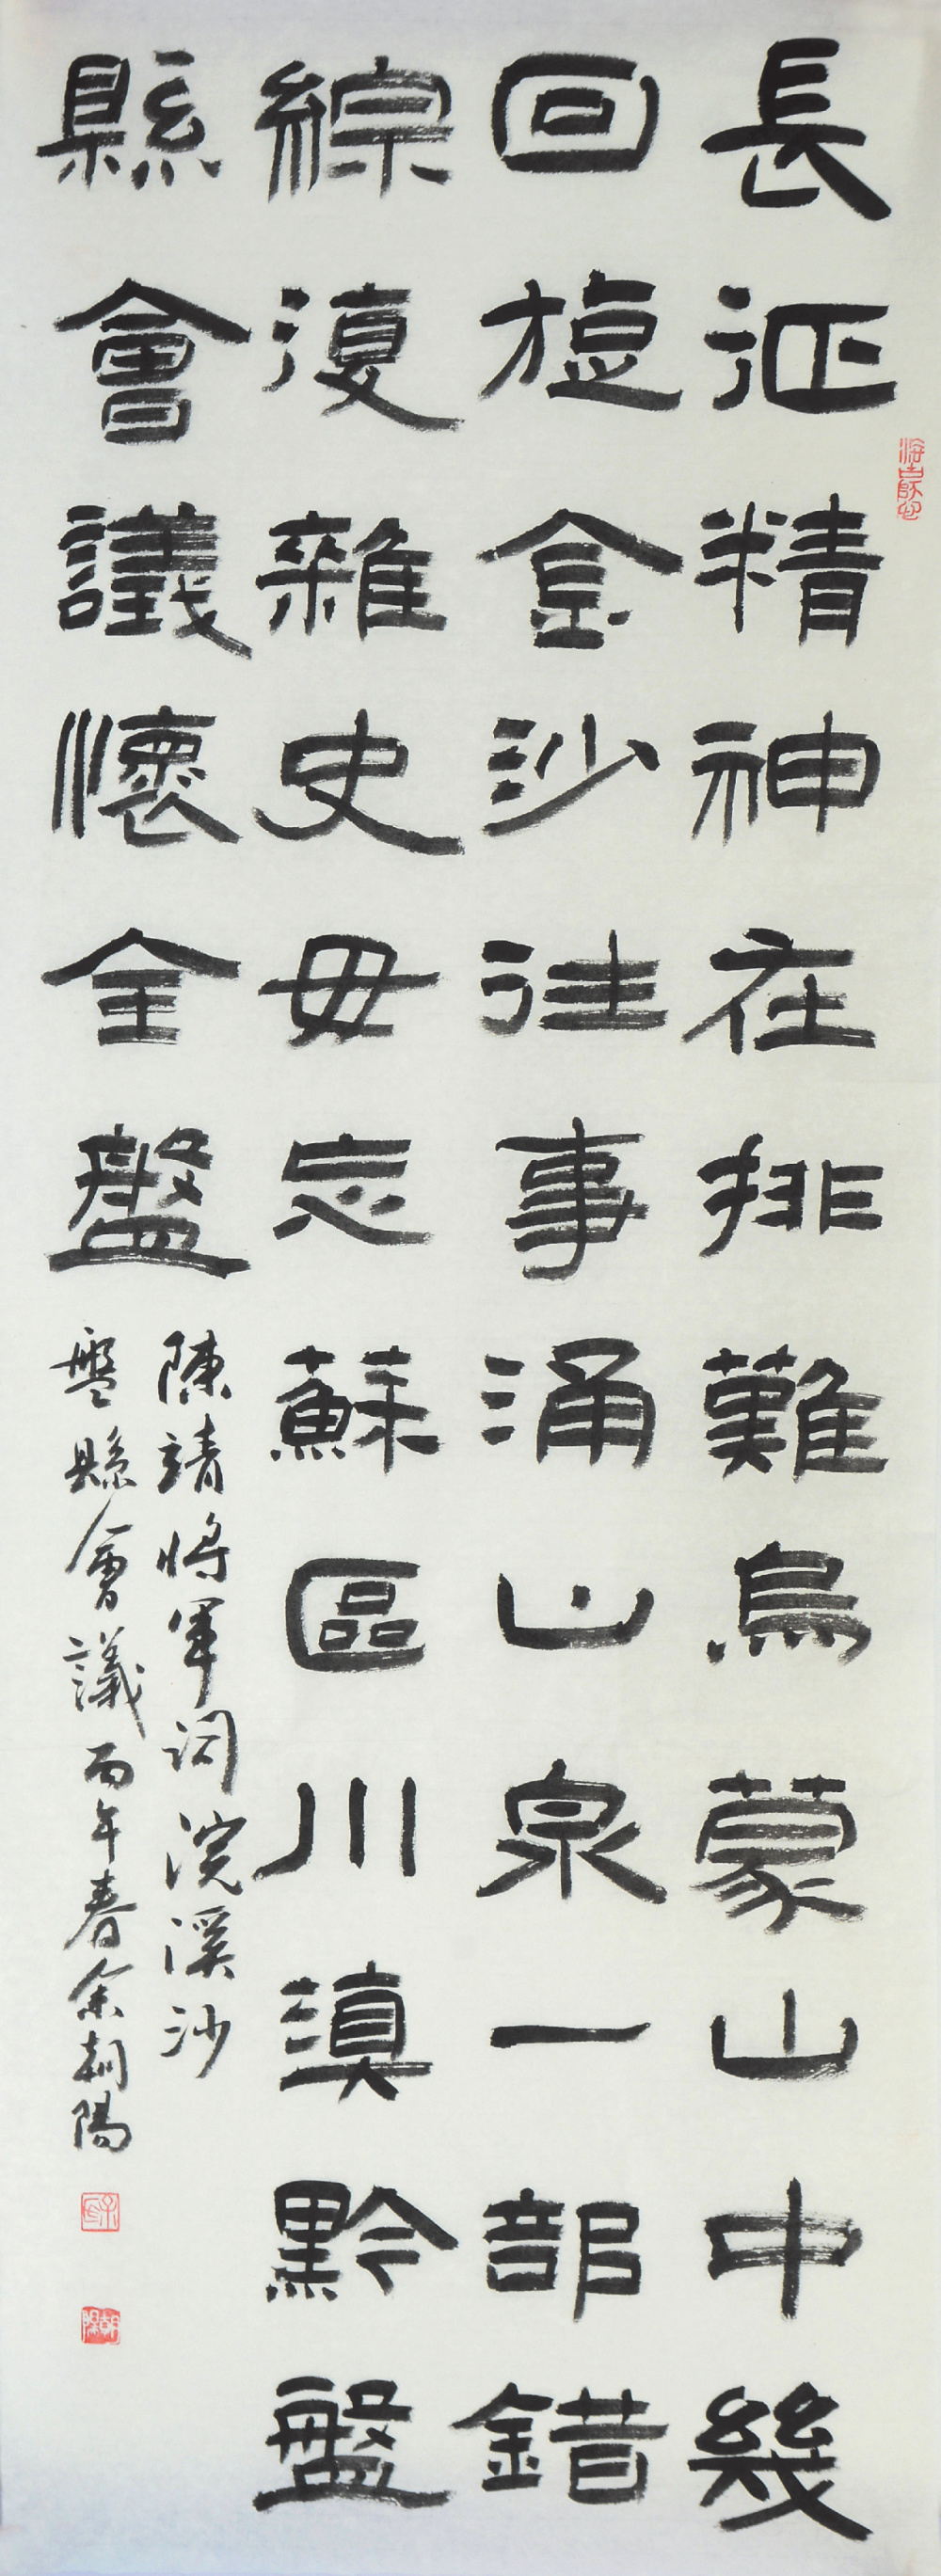 長征精神在排難烏蒙山中幾
回旋金沙往事涌山泉一部錯
綜復雜史毋忘蘇區川滇黔盤
縣會議懷全盤
陳靖將軍詞浣溪沙
盤縣會議丙午春余朝陽